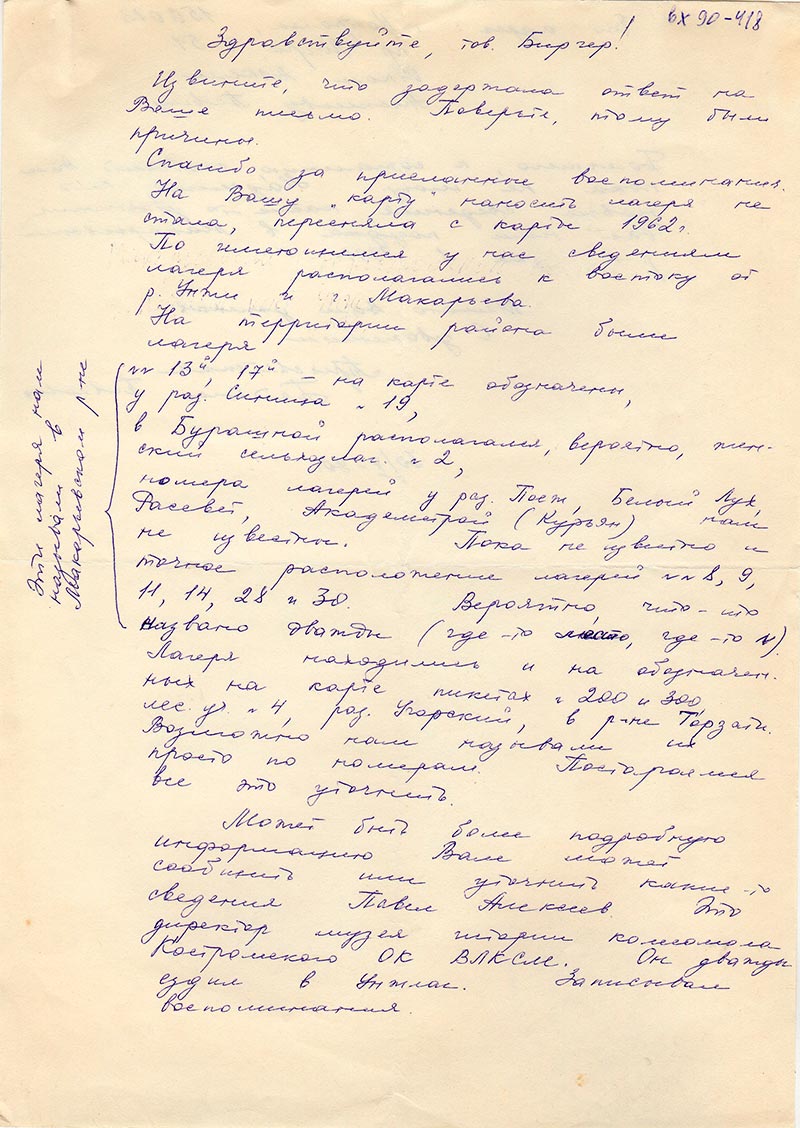 вх 90-418
Здравствуйте, тов. Биргер!
Извините, что задержала ответ на
Ваше письмо. Поверьте, тому были
причины.
Спасибо за присланные воспоминания.
На Вашу "карту" наносить лагеря не
стала, пересняла с карты 1962 г.
По имеющимся у нас сведениям
лагеря располагались к востоку от
р. Унжи и г. Макарьева.
На территории района были
лагеря
№№ 13й, 17й – на карте обозначены,
у раз. Синица № 19,
в Бурашной располагался, вероятно, жен-
ский сельхозлаг. № 2,
номера лагерей у раз. Пост, Белый Лух,
Рассвет, Академстрой (Курьян) нам
не известны. Пока не известно и
точное расположение лагерей №№ 8, 9,
11, 14, 28 и 38. Вероятно, что-что
названо дважды (где-то место, где-то №).
Эти лагеря нам
называли в
Макарьевском р-не
Лагеря находились и на обозначен-
ных на карте пикетах № 200 и 300,
лес. уч. № 4, раз. Угорский, в р-не
Возможно нам называли их
просто по номерам. Постараемся
все это уточнить.
Может быть более подробную
информацию Вам может
сообщить или уточнить какие-то
сведения Павел Алексеев. Это
директор музея истории комсомола
Костромского ОК ВЛКСМ. Он дважды
ездил в Унжлаг. Записывал
воспоминания.